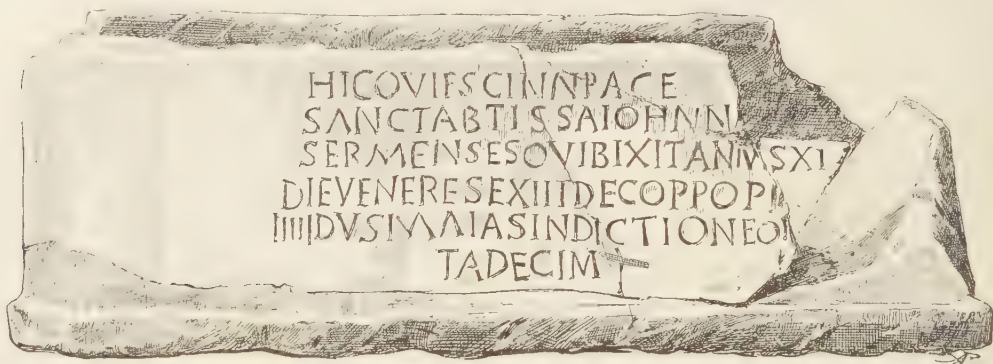 HICQVIESCINNPACE
SANCTABTISSAIOHNN
SERMENSESQVIBIXITANNVSXI
DIEVENERESEXIIIDECOPPOPI
IIIIIDVSIMAIASINDICTIONEO
TADECIM